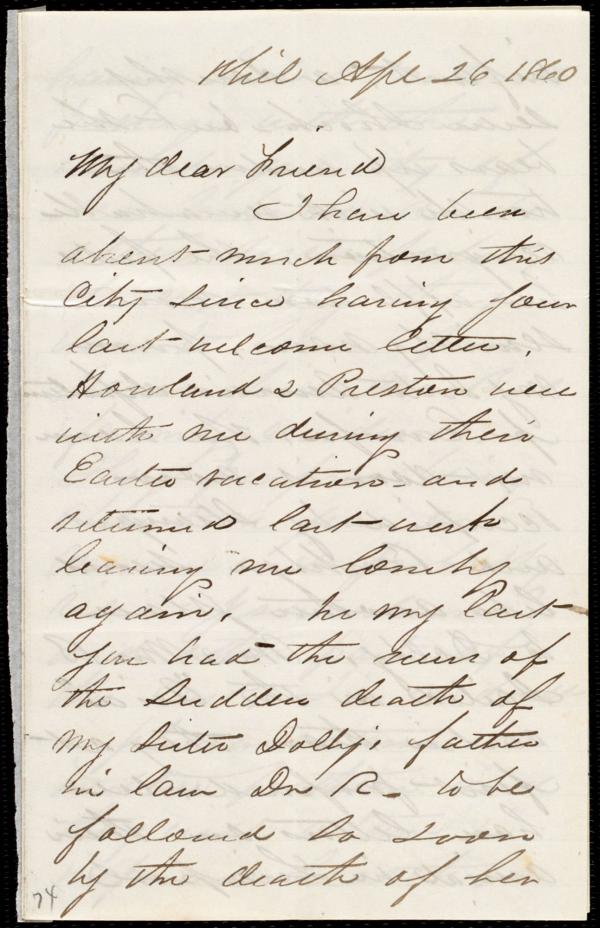 Phil Apl 26 1860
My dear Friend
I have been
absent much from this
City since having your
last welcome letter.
Howland & Preston were
with me during their
Easter vacation - and
returned last week
leaving me lonely
again. In my last
you had the news of
the sudden death of
my sister Dolly's father
in law Dr R - to be
followed so soon
by the death of her
74